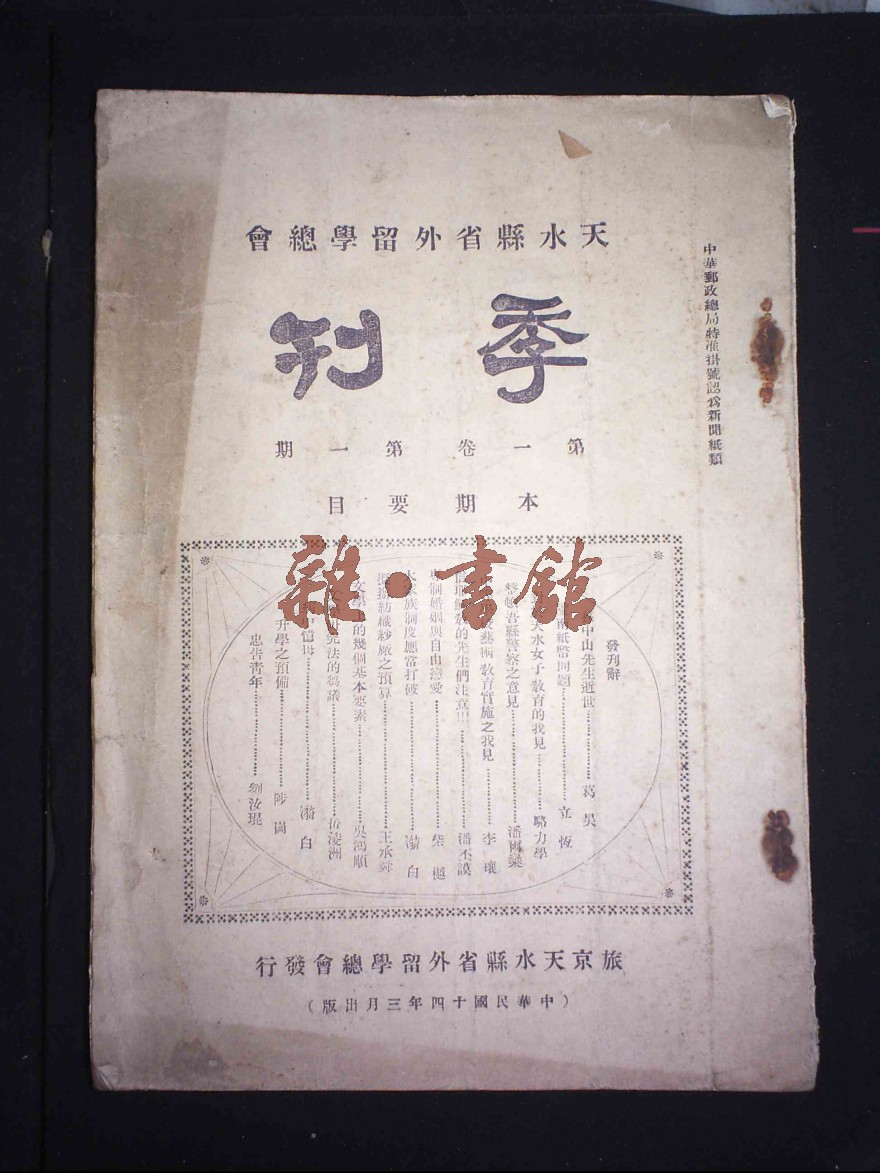 中華郵政總局特准掛號認爲新聞紙類
天水縣省外留學總會
季刊
第一卷第一期
本期要目
發刊辭
中山先生逝世 葛昊
紙幣問題 立恆
天水女子教育的我見 駱力學
整頓吾縣警察之意見 潘爾燊
藝術教育實施之我見 李瓌
的先生們注意!!! 潘丕謨
專制婚姻與自由戀愛 柴樾
大家族制度應當打破 漪白
紡織紗廠之預算 王承舜
文學上的幾個基本要素 吳鴻順
究法的芻議 凌洲
憶母 漪白
升學之預備 陟岡
忠告青年 劉汝琨
雜·書館
旅京天水縣省外留學總會發行
(中華民國十四年三月出版)